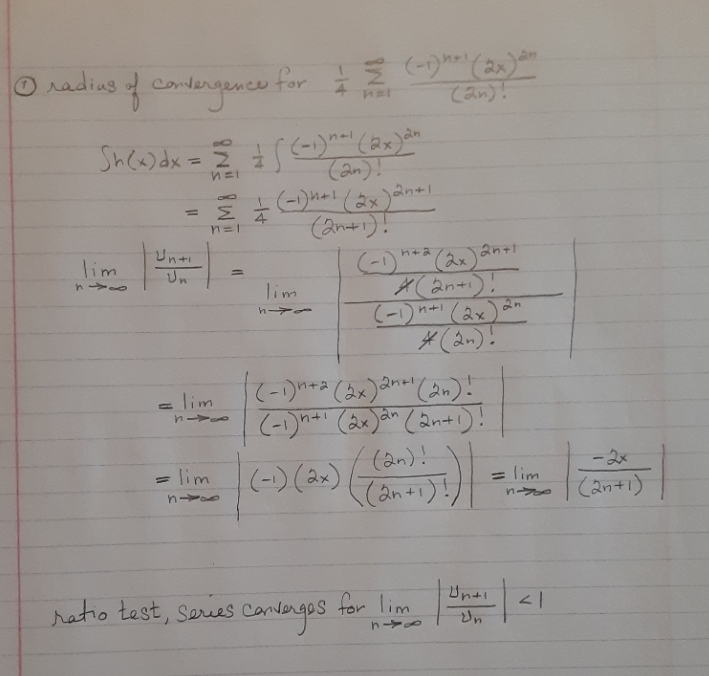 ① radius of convergence for 1/4 ∑_{n=1}^{∞} (-1)^{n+1} (2x)^{2n} / (2n)!
∫h(x)dx = ∑_{n=1}^{∞} 1/4 ∫ (-1)^{n+1} (2x)^{2n} / (2n)!
= ∑_{n=1}^{∞} 1/4 (-1)^{n+1} (2x)^{2n+1} / (2n+1)!
lim_{n→∞} |U_{n+1} / U_n| = lim_{n→∞} | ((-1)^{n+2} (2x)^{2n+1} / 4(2n+1)!) / ((-1)^{n+1} (2x)^{2n} / 4(2n)!) |
= lim_{n→∞} | (-1)^{n+2} (2x)^{2n+1} (2n)! / (-1)^{n+1} (2x)^{2n} (2n+1)! |
= lim_{n→∞} | (-1)(2x) ((2n)! / (2n+1)!) | = lim_{n→∞} | -2x / (2n+1) |
ratio test, series converges for lim_{n→∞} |U_{n+1} / U_n| < 1